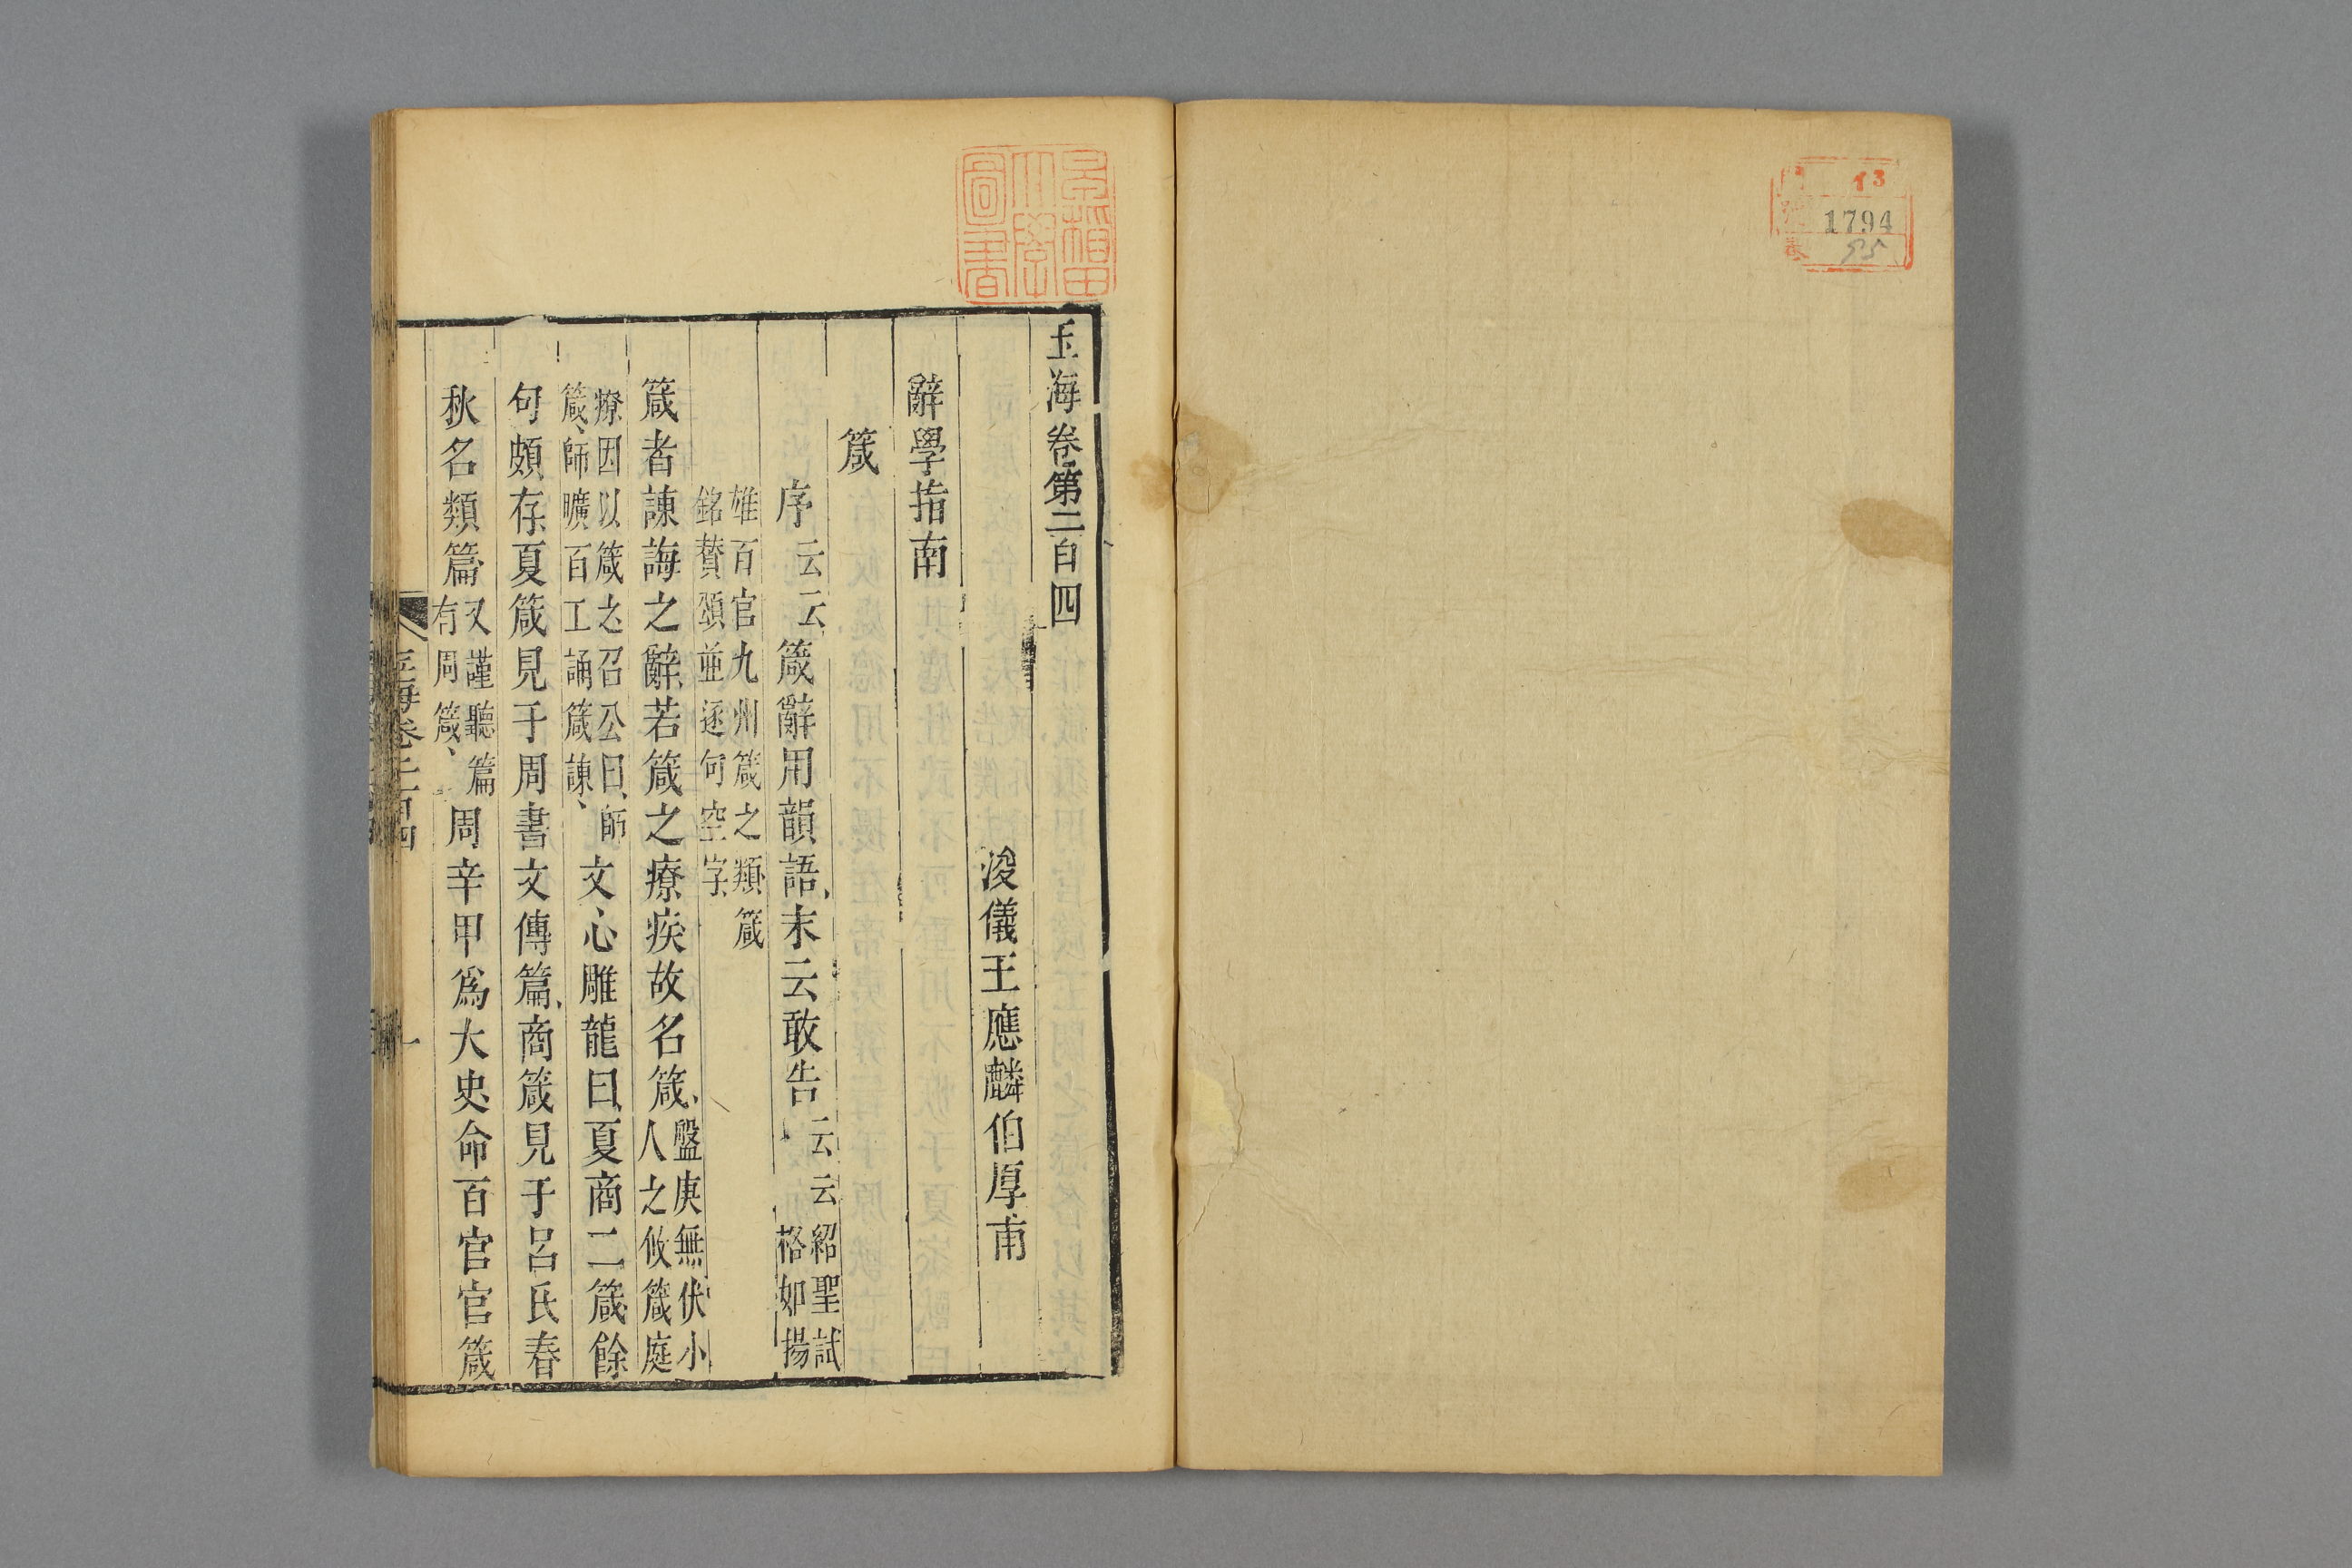 13
1794
95
早稲田大學圖書
玉海卷第二百四
浚儀王應麟伯厚甫
辭學指南
箴
序云云箴辭用韻語末云敢告云云紹聖試格如揚
雄百官九州箴之類箴銘贊頌並逐句空字
箴者諫誨之辭若箴之療疾故名箴盤庚無伏小人之攸箴庭
療因以箴之召公曰師箴師曠百工誦箴諫文心雕龍曰夏商二箴餘
句頗存夏箴見于周書文傳篇商箴見于呂氏春
秋名類篇又謹聽篇有周箴周辛甲爲大史命百官官箴
玉海卷二百四
一